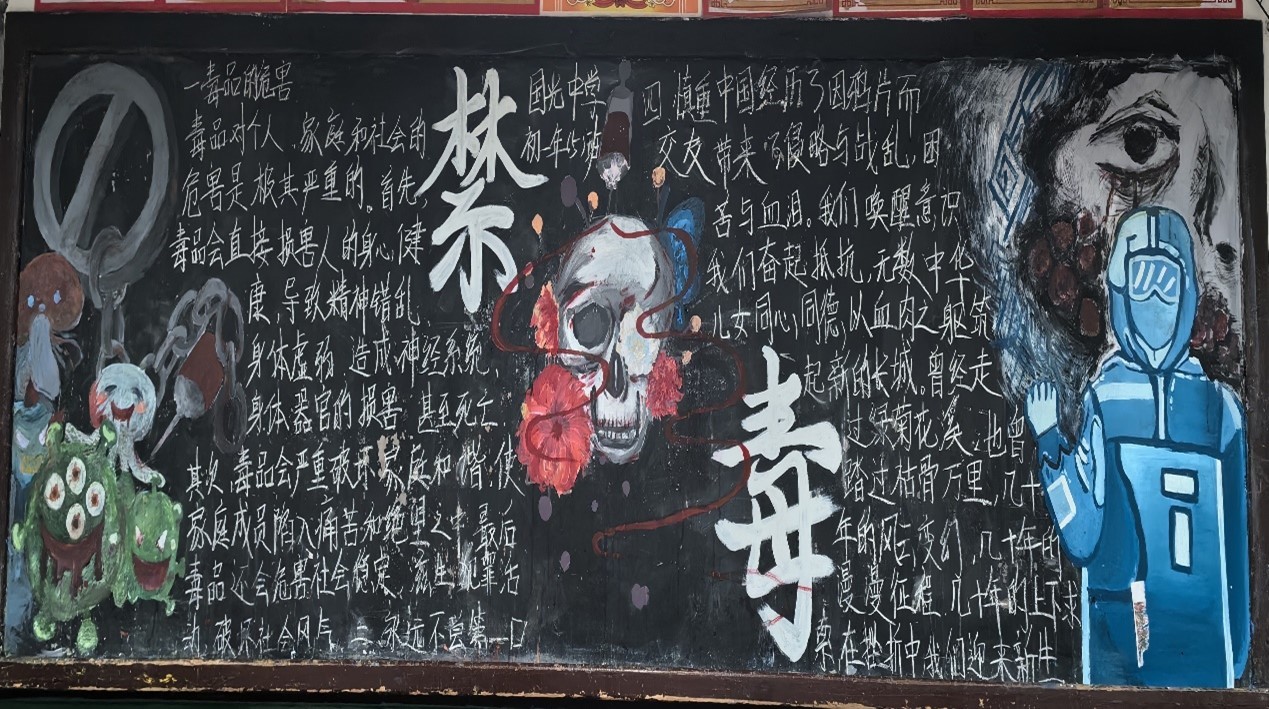 一毒品的危害
毒品对个人、家庭和社会的
危害是极其严重的。首先,
毒品会直接损害人的身心健
康,导致精神错乱
身体虚弱 造成神经系统,
身体器官的损害 甚至死亡
其次 毒品会严重破坏家庭和谐,使
家庭成员陷入痛苦和绝望之中 最后
毒品还会危害社会稳定,滋生犯罪活
动 破坏社会风气 二 永远不尝第一口
禁
毒
国光中学
初一年
四.慎重中国经历了因鸦片而
交友 带来了侵略与战乱,困
苦与血泪。我们唤醒意识
我们奋起抵抗,无数中华
儿女同心同德,以血肉之躯筑
起新的长城。曾经走
过绿菊花溪,也曾
踏过枯骨万里,几十
年的风云变幻,几十年的
漫漫征程,几十年的上下求
索在挫折中我们迎来新生